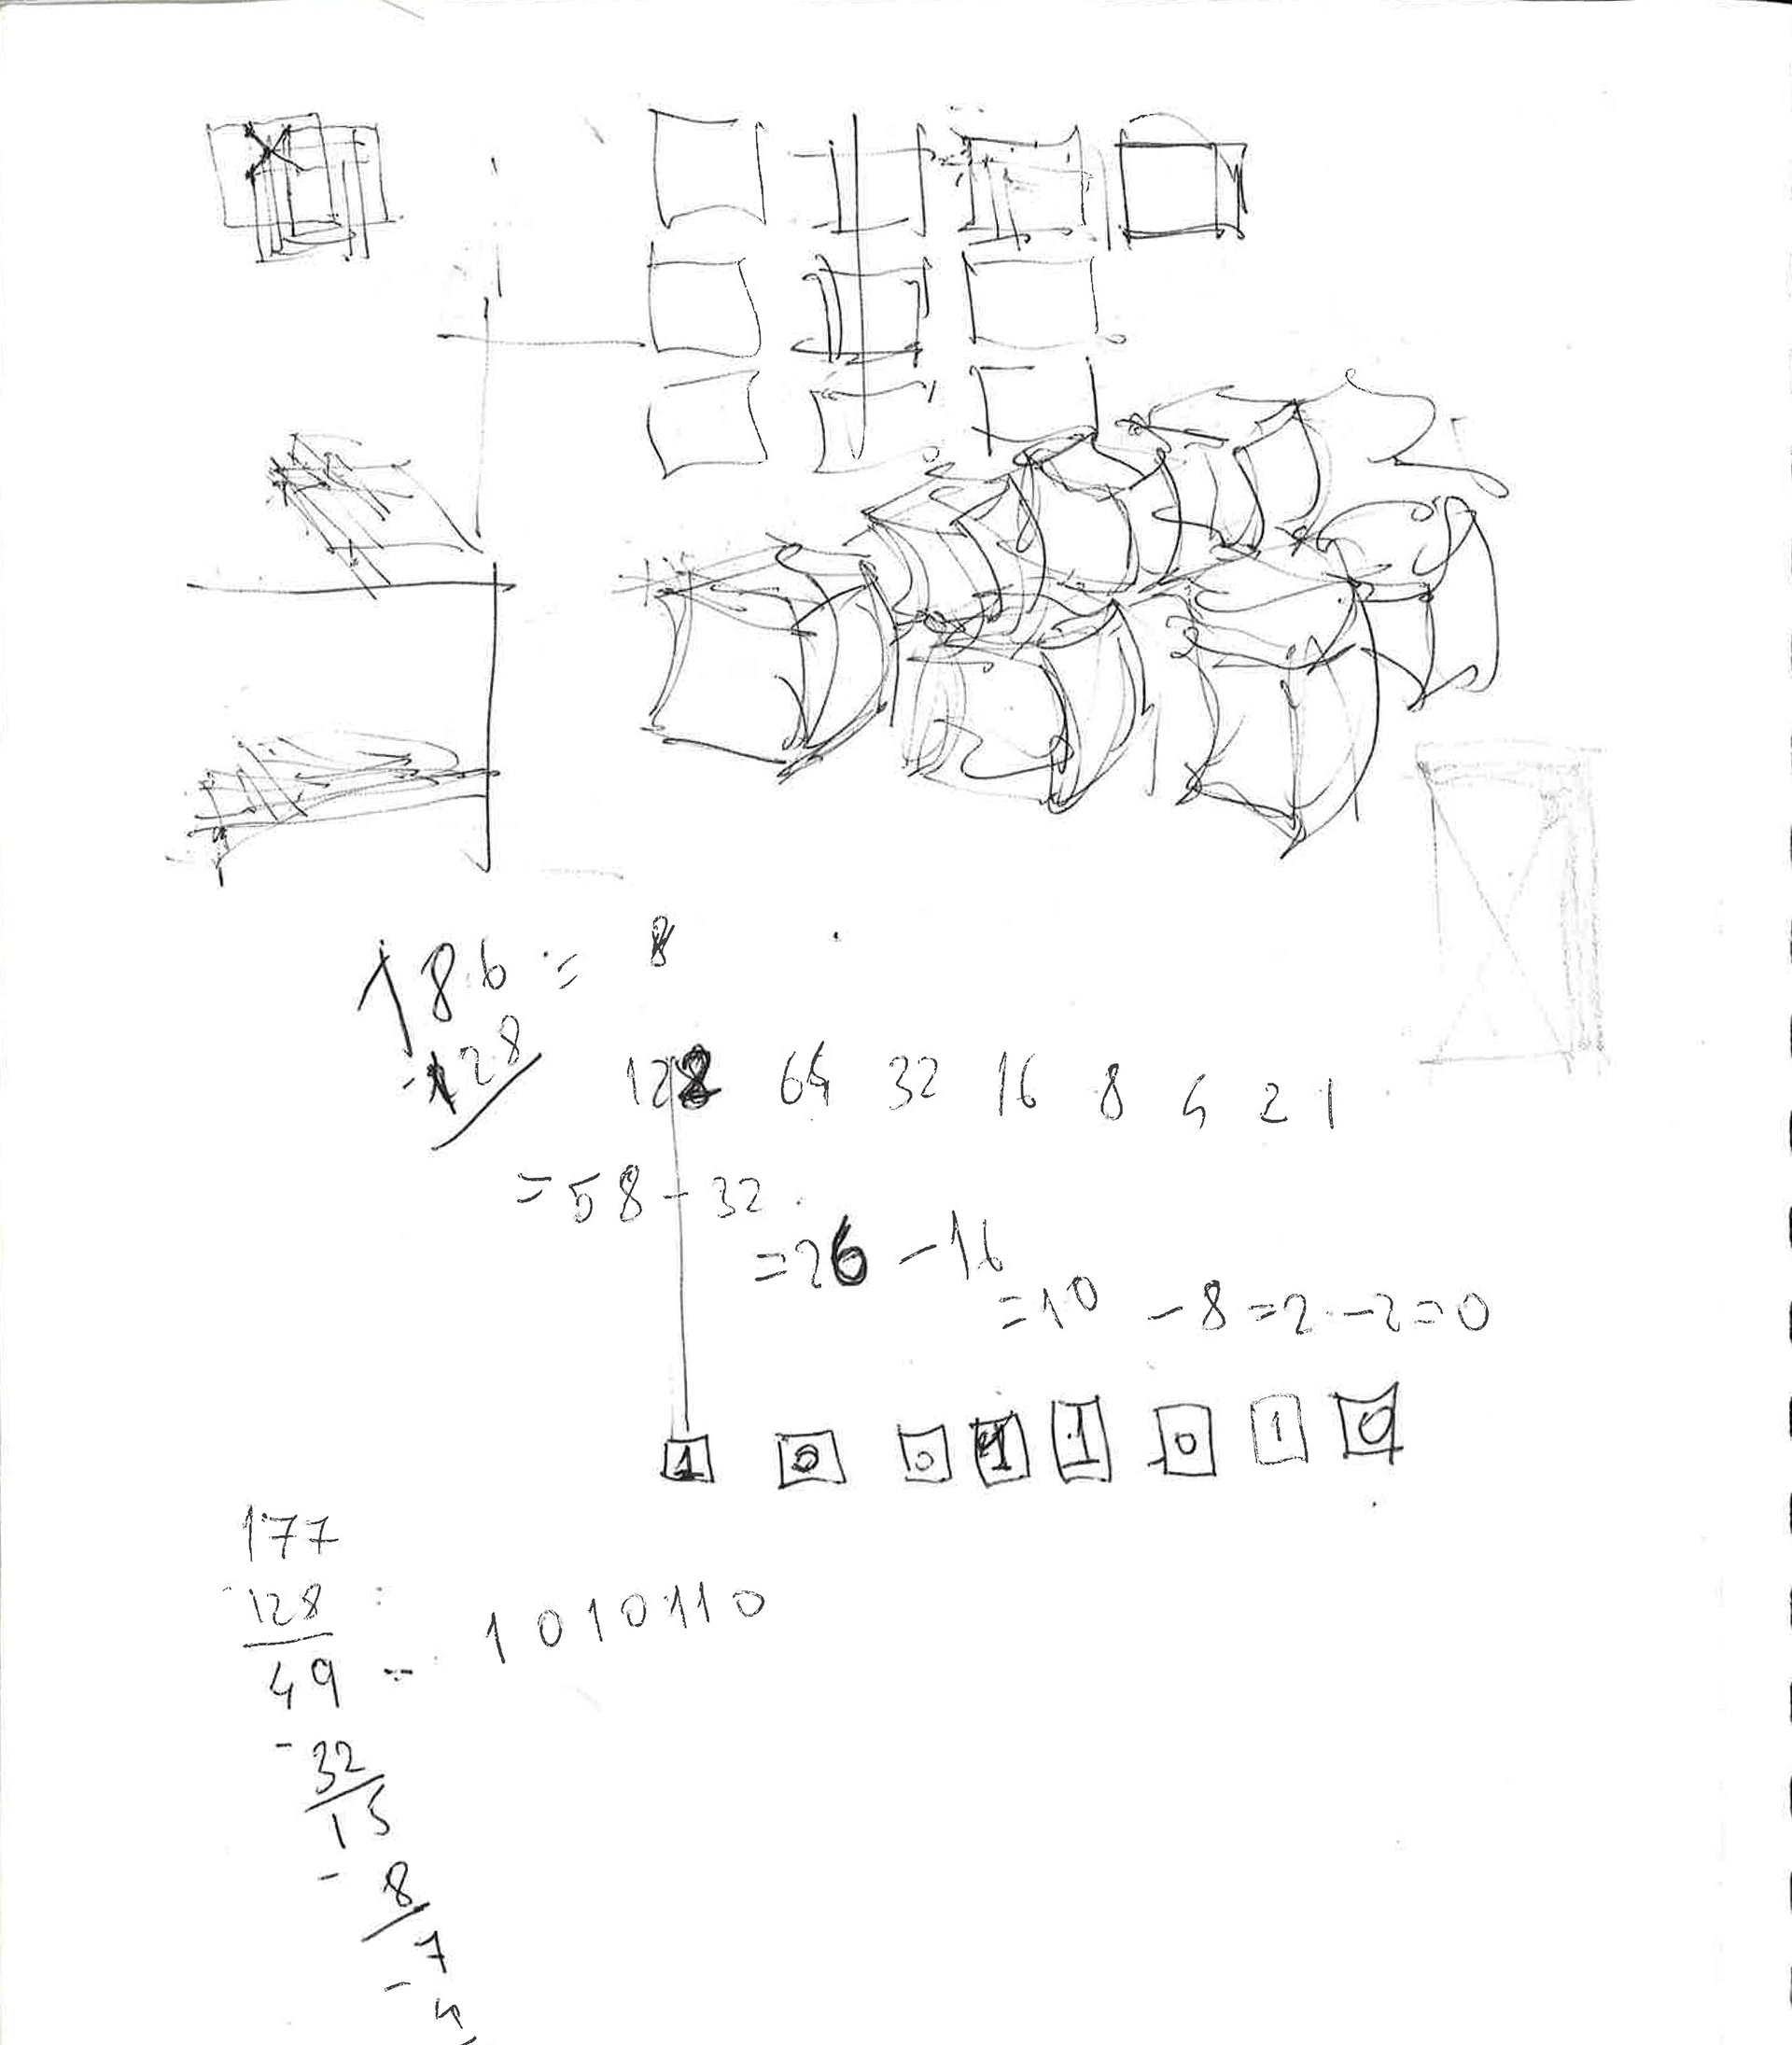 186 = 8
-128
128 64 32 16 8 4 2 1
= 58 - 32
= 26 - 16
= 10 - 8 = 2 - 2 = 0
1 0 0 1 1 0 1 0
177
128
49 = 1010110
- 32
15
- 8
7
- 4